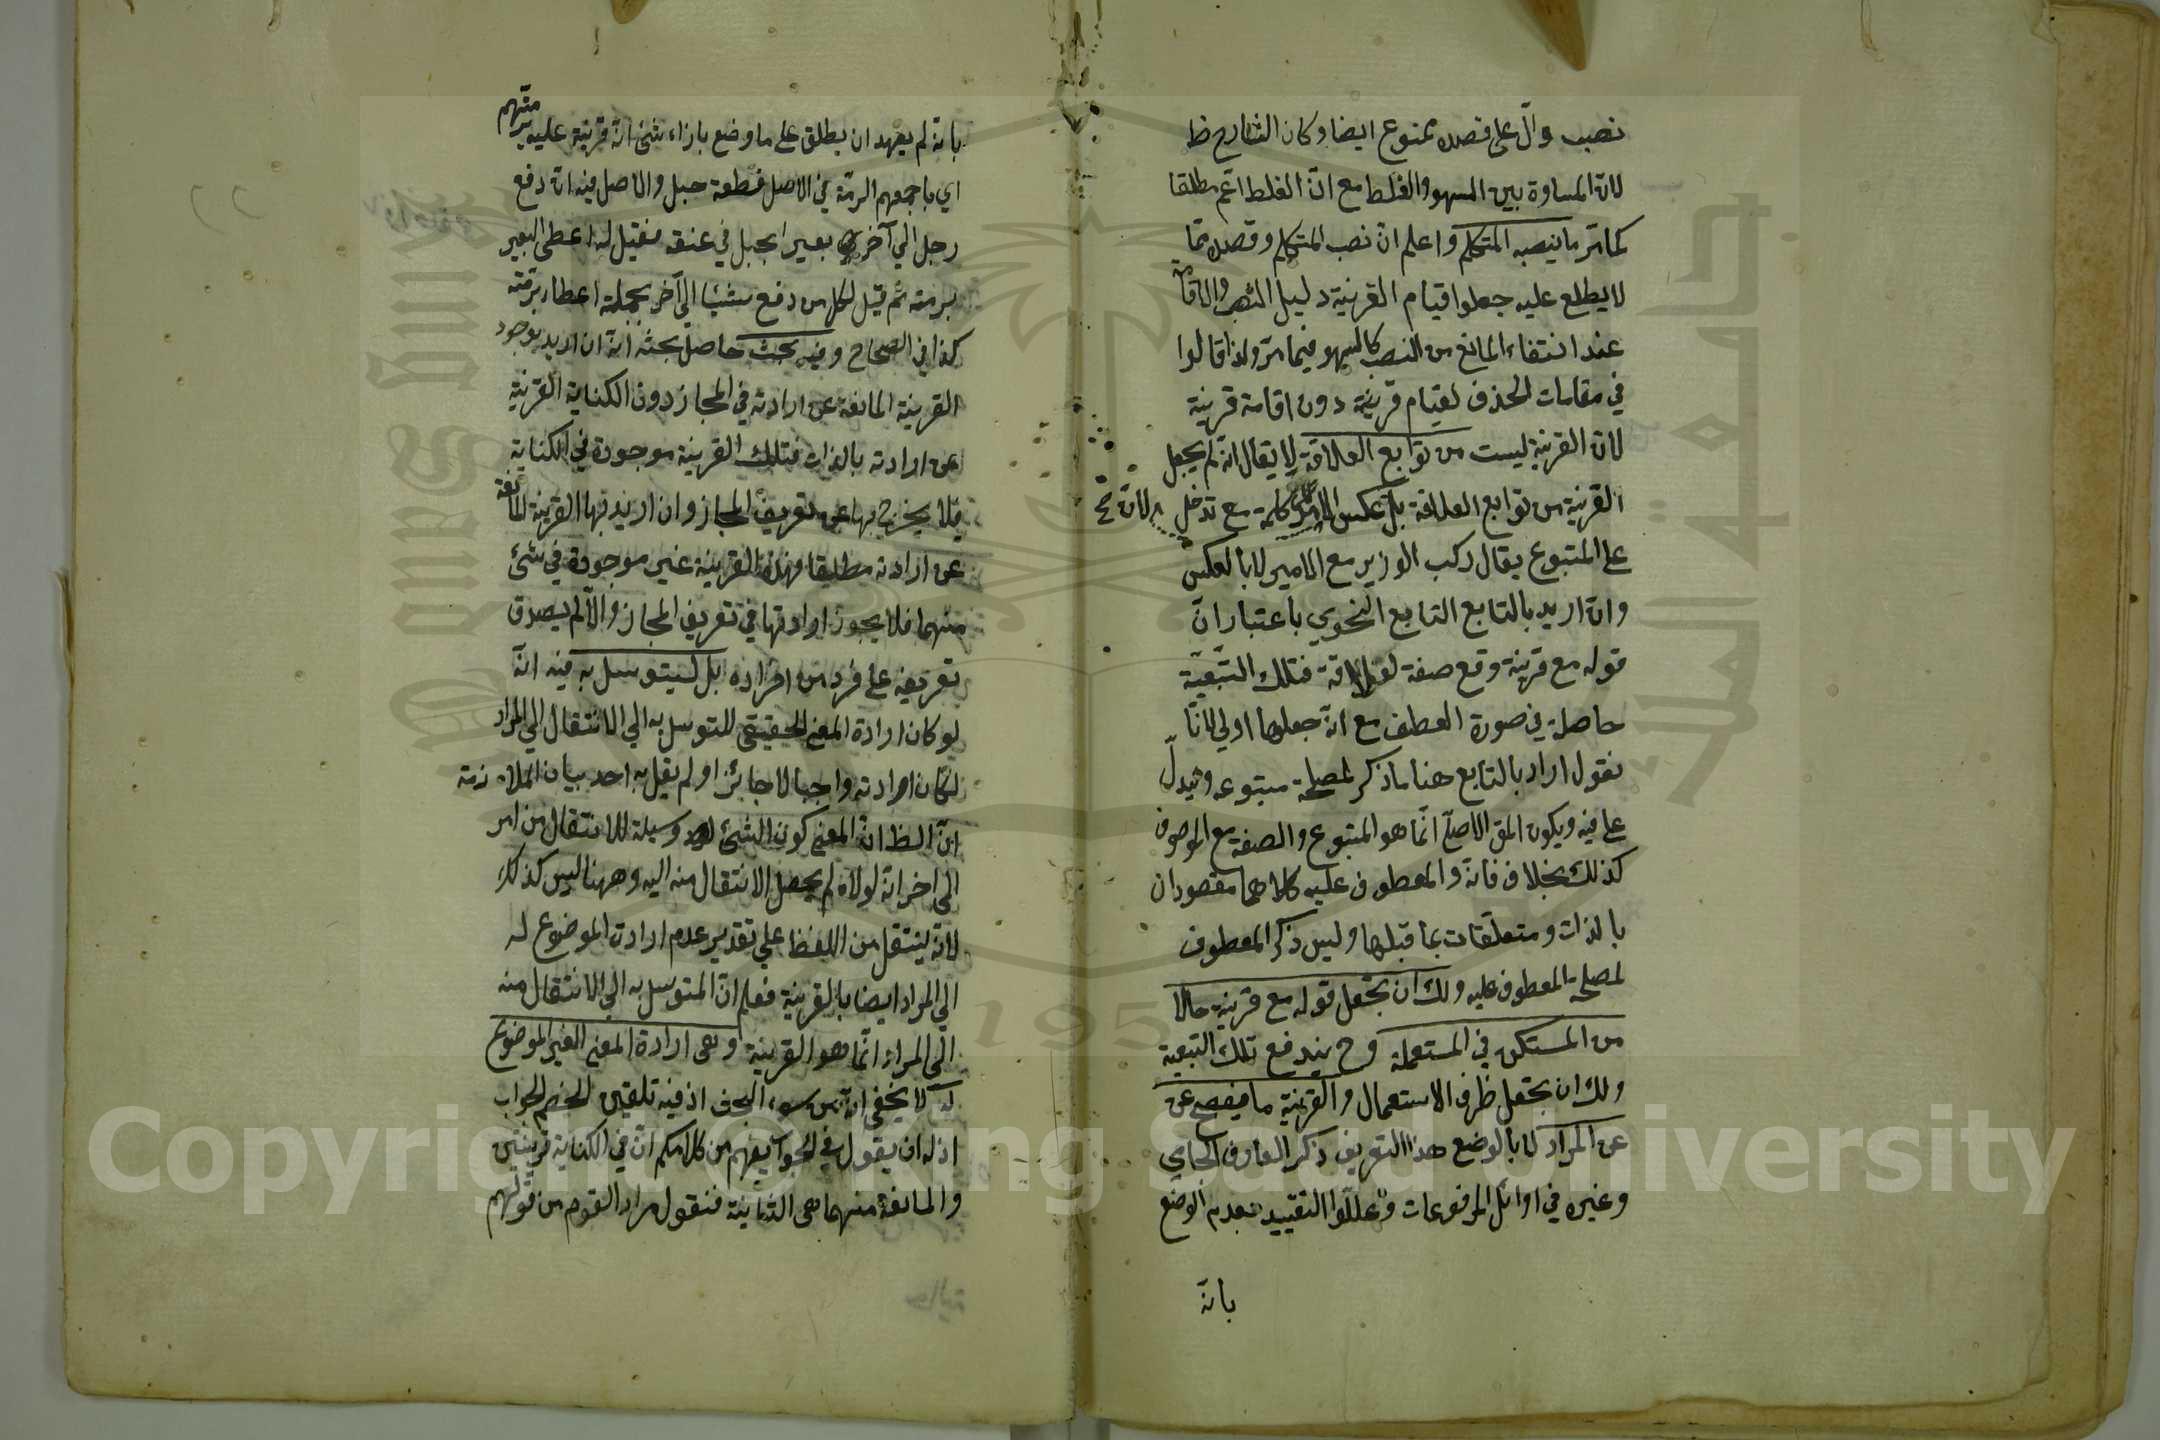 نصب دالّ على قصده ممنوع ايضا وكان الشارح ظ
لانّ المساوة بين السهو والغلط مع انّ الغلط اتم مطلقا
كما مرّ ما ينصبه المتكلم واعلم انّ نصب المتكلم وقصده ممّا
لا يطلع عليه جعلوا قيام القرينة دليل النصب والاقامة
عند انتفاء المانع من النصب كالسهو فيما مرّ ولذا قالوا
في مقامات الحذف لقيام قرينة دون اقامة قرينة
لانّ القرينة ليست من توابع العلاقة لا يقال انه لم يجعل
القرينة من توابع العلاقة بل عكس الامر لانّ كلمة مع تدخل
على المتبوع يقال ركب الوزير مع الامير لا بالعكس
وان اريد بالتابع التابع النحوي باعتبار انّ
قوله مع قرينة وقع صفة لعلاقة فتلك التبعيّة
حاصلة في صورة العطف مع انّ جعلها اولي لانّا
نقول اراد بالتابع هنا ما ذكر لمصلحة متبوعه ويدلّ
على فيه ويكون المق الاصلّي انّما هو المتبوع والصفة مع الموصوف
كذلك بخلاف فانه والمعطوف عليه كلاهما مقصودان
بالذات ومتعلّقات بما قبلها وليس ذكر المعطوف
لمصلحة المعطوف عليه ولك ان تجعل قوله مع قرينة حالا
من المستكن في المستعملة وح يندفع تلك التبعية
ولك ان تجعل ظرف الاستعمال والقرينة ما يفصح عن
عن المراد لا بالوضع هذا التعريف ذكر العارف الجامي
وغيره في اوائل المرفوعات وعللّوا التقييد بعدم الوضع
بانّه
بانّه لم يعهد ان يطلق على ما وضع بازاء شئ انّه قرينة عليه برمّتهم
اي باجمعهم الرمّة في الاصل قطعة حبل والاصل فيه انّه دفع
رجل الي آخر بعيرا بحبل في عنقه فقيل له اعطى البعير
برمته ثم قيل لكل من دفع شيئا الي آخر بجملته اعطاه برمّته
كذا في الصحاح وفيه بحث حاصل بحثه انّه ان اريد بوجود
القرينة المانعة عن ارادته في المجاز دون الكناية القرينة
عن ارادته بالذات فتلك القرينة موجودة في الكناية
فلا يخرج بها عن تعريف المجاز وان اريد بها القرينة المانعة
عن ارادته مطلقا فهذه القرينة غير موجودة في شئ
منهما فلا يجوز ارادتها في تعريف المجاز والاّ لم يصدق
تعريفه على فرد من افراده بل ليتوسل به فيه انّه
لو كان ارادة المعنى الحقيقي للتوسل به الي الانتقال الي المراد
لكان ارادته واجبا لا جائزا ولم يقل به احد بيان الملازمة
انّ الظ انّ المعني كون الشئ وسيلة للانتقال من امر
الى اخر انّه لولاه لم يحصل الانتقال منه اليه وههنا ليس كذلك
لانّه ينتقل من اللفظ علي تقدير عدم ارادة الموضوع له
الي المراد ايضا بالقرينة فعلم انّ المتوسل به الي الانتقال منه
الى المراد انّما هو القرينة وهى ارادة المعنى الغير الموضوع
له لا يخفي انّه من سوء البحث اذ فيه تلقين للخصم الجواب
اذ له ان يقول في الجواب يفهم من كلامكم انّ في الكناية قرينتين
والمانعة منهما هي الثانية فنقول مراد القوم من قولهم
Copyright © King Saud University
جامعة الملك سعود
King Saud
195